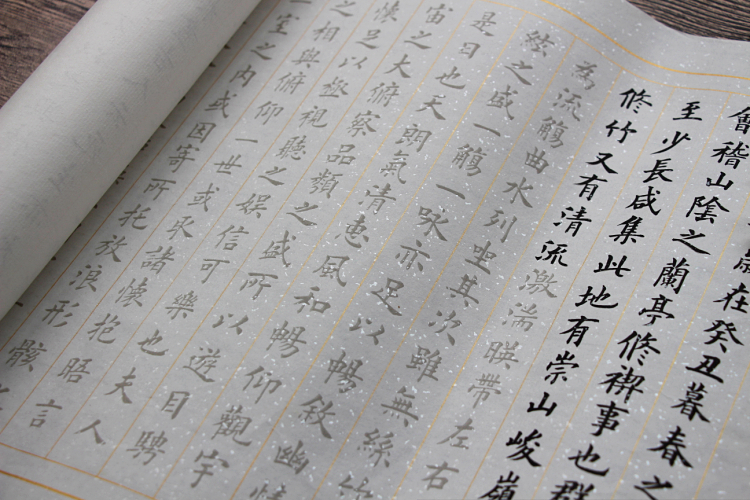 歲在癸丑暮春之
會稽山陰之蘭亭修禊事也群
至少長咸集此地有崇山峻嶺
修竹又有清流激湍暎帶左右
為流觴曲水列坐其次雖無絲竹
絃之盛一觴一咏亦足以暢敘幽情
是日也天朗氣清惠風和暢仰觀宇
宙之大俯察品類之盛所以遊目騁
懷足以極視聽之娛信可樂也夫人
之相與俯仰一世或取諸懷抱晤言
一室之內或因寄所托放浪形骸